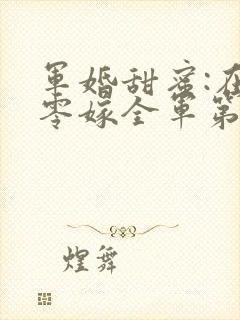 军婚甜蜜:在
零嫁全军第
煌舞